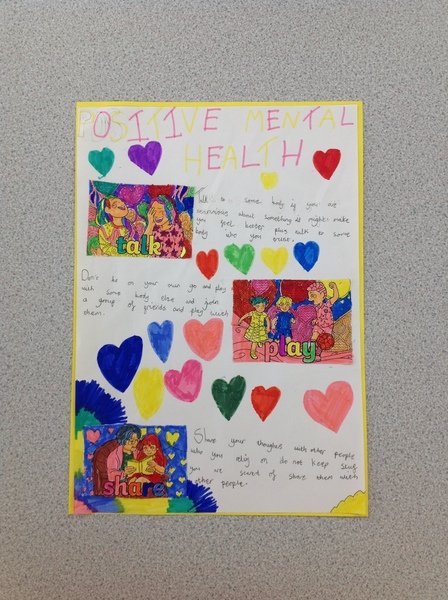 POSITIVE MENTAL
HEALTH
Talk to some body if you are
about something it might make
you feel better plus talk to some
body who you trust.
talk
Don't be on your own go and play
with some body else and join
a group of friends and play with
them.
play
Share your thoughts with other people
who you rely on do not keep
you are scared of share them with
other people.
share